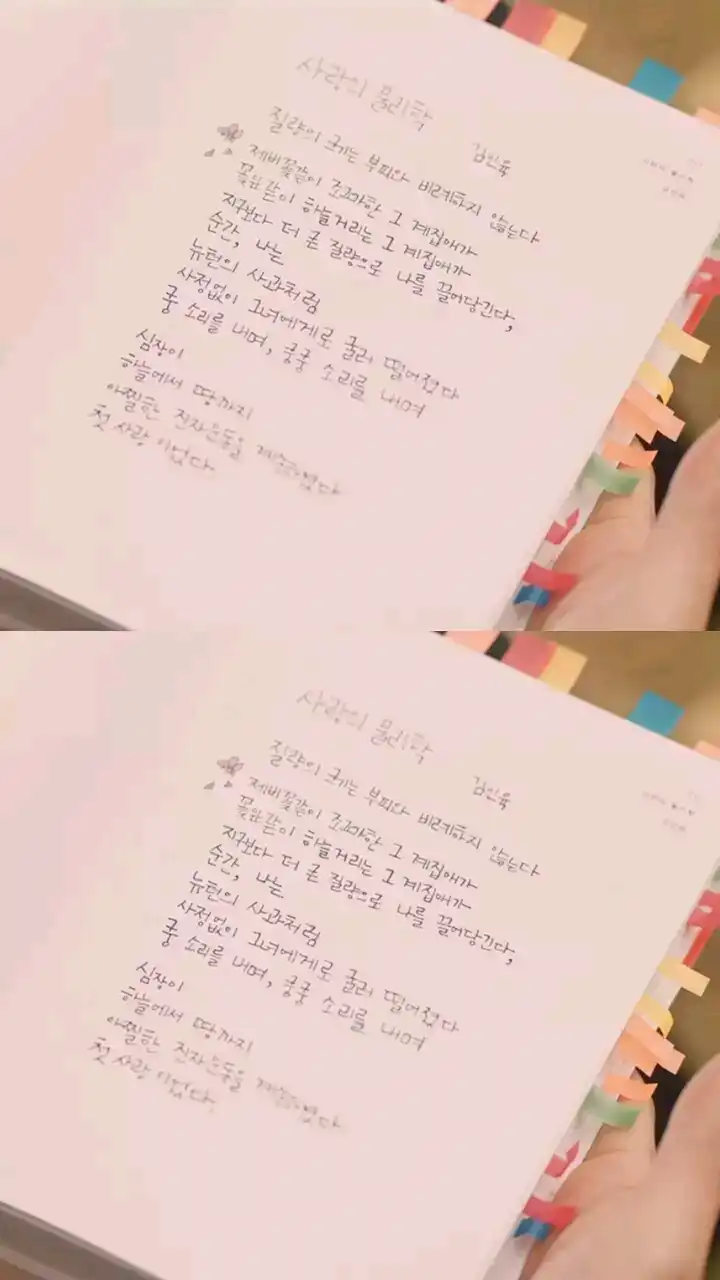 사랑의 물리학
김인육
질량의 크기는 부피와 비례하지 않는다
제비꽃같이 조그마한 그 계집애가
꽃잎같이 하늘거리는 그 계집애가
지구보다 더 큰 질량으로 나를 끌어당긴다,
순간, 나는
뉴턴의 사과처럼
사정없이 그녀에게로 굴러 떨어졌다
쿵 소리를 내며, 쿵쿵 소리를 내며
심장이
하늘에서 땅까지
아찔한 진자운동을 계속하였다
첫사랑이었다.
사랑의 물리학
김인육
질량의 크기는 부피와 비례하지 않는다
제비꽃같이 조그마한 그 계집애가
꽃잎같이 하늘거리는 그 계집애가
지구보다 더 큰 질량으로 나를 끌어당긴다,
순간, 나는
뉴턴의 사과처럼
사정없이 그녀에게로 굴러 떨어졌다
쿵 소리를 내며, 쿵쿵 소리를 내며
심장이
하늘에서 땅까지
아찔한 진자운동을 계속하였다
첫사랑이었다.